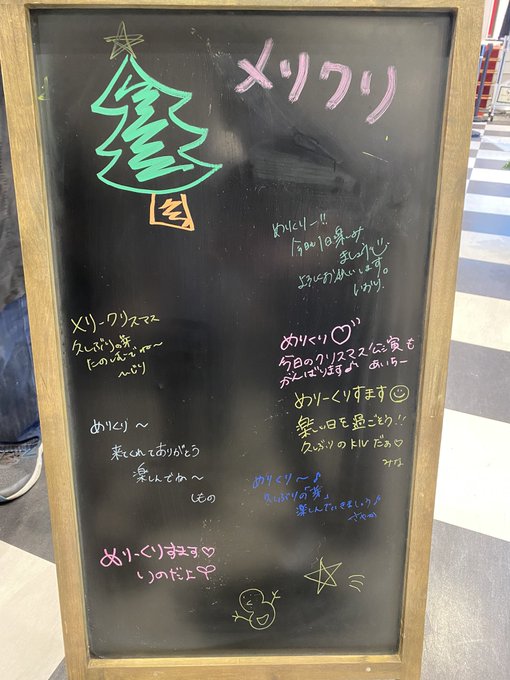 メリクリ
めりくりー!!
今日も1日楽しみ
ましょう
ようにお願いします。
いおり。
メリークリスマス
久しぶりの芽
たのしんでね〜
めりくり♡
今日のクリスマス公演も
がんばります♪ あいちー
めりーくりすます☺
楽しい日を過ごそう!!
久しぶりのドルだぁ♡
みな
めりくり〜
来てくれてありがとう
楽しんでね〜
しもの
めりくり〜♪
久しぶりの「芽」
楽しんでいきましょう♪
さやか
めりーくりすます♡
いのだよ